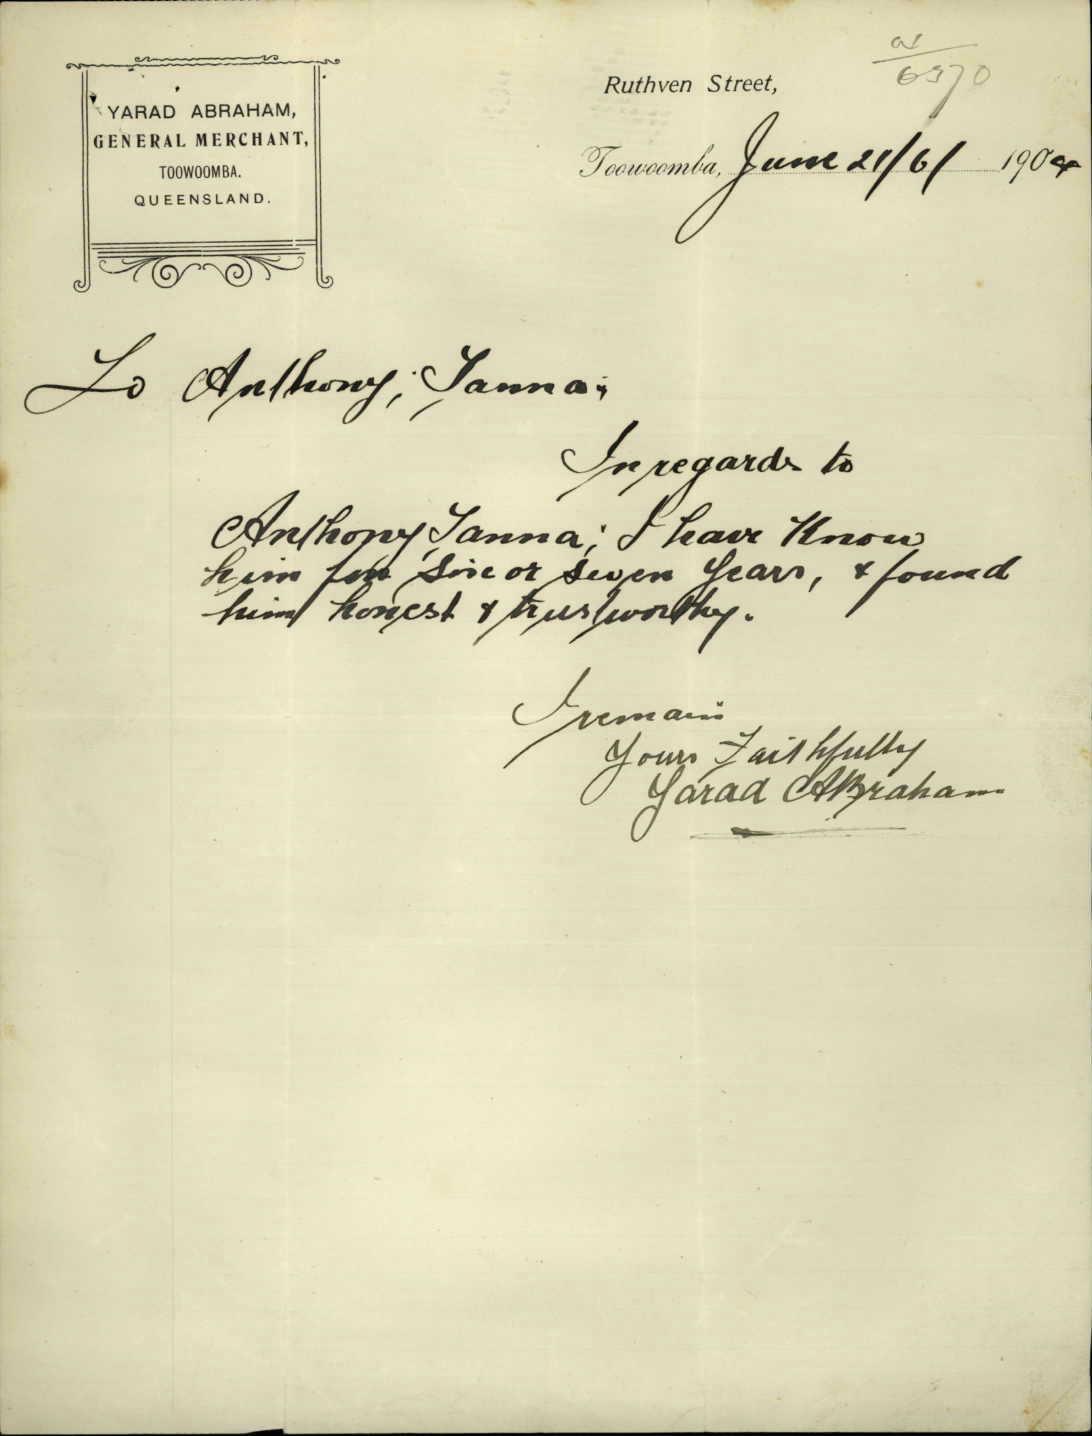 YARAD ABRAHAM,
GENERAL MERCHANT,
TOOWOOMBA.
QUEENSLAND.
04/6570
Ruthven Street,
Toowoomba, June 21/6/ 1904
To Anthony; Tanna;
In regards to
Anthony Tanna; I have Know
him for Sixe or Seven Years, & found
him honest & trustworthy.
I remain
Yours Faithfully
Yarad ABraham